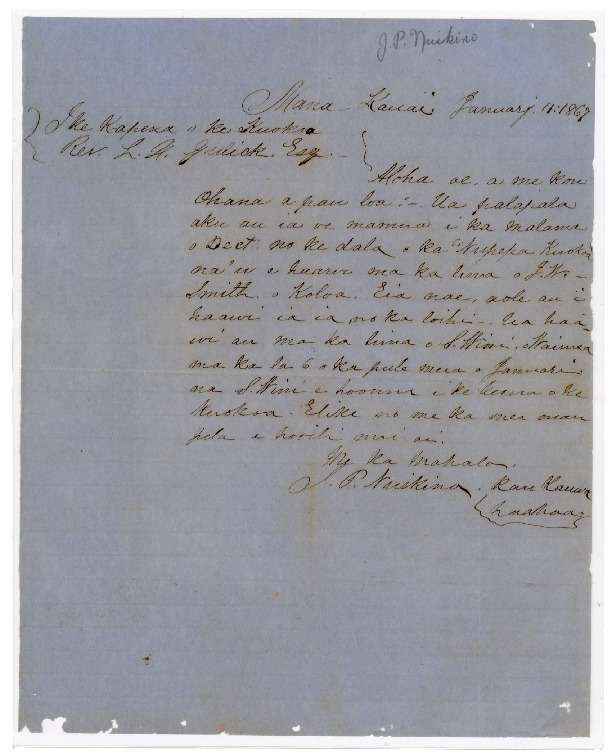 J. P. Nuikino
Mana - Kauai Januari. 11. 1867
I ke Kapena o ke Kuokoa
Rev. L. H. Gulick. Esq. -
Aloha oe, a me kou
Ohana a pau loa:- Ua palapala
aku au ia oe mamua i ka malama
o Dect. no ke dala o ka Nupepa Kuokoa
na'u e haawi ma ka lima o J. W.
Smith. o Koloa. Eia nae, aole au i
haawi ia ia no ka loihi -. Ua haa
wi au ma ka lima o S. Wini. Waimea
ma ka la 6 o ka pule mua o Januari.
na S. Wini e hoouna i ke Luna o ke
Kuokoa. Elike no me ka mea maa
pela e hooili mai ai.
Me ka mahalo.
J. P. Nuikino. Kau Kauwa
haahaa.